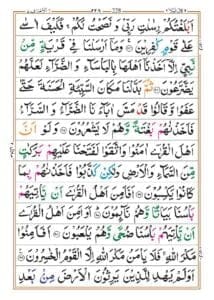 اَبْلَغْتُكُمْ رِسٰلٰتِ رَبِّیْ وَنَصَحْتُ لَكُمْ ۚ فَكَیْفَ اٰسٰی
عَلٰی قَوْمٍ كٰفِرِیْنَ ۝ وَمَاۤ اَرْسَلْنَا فِیْ قَرْیَةٍ مِّنْ نَّبِیٍّ
اِلَّاۤ اَخَذْنَاۤ اَهْلَهَا بِالْبَاْسَآءِ وَالضَّرَّآءِ لَعَلَّهُمْ
یَضَّرَّعُوْنَ ۝ ثُمَّ بَدَّلْنَا مَكَانَ السَّیِّئَةِ الْحَسَنَةَ حَتّٰی
عَفَوْا وَّقَالُوْا قَدْ مَسَّ اٰبَآءَنَا الضَّرَّآءُ وَالسَّرَّآءُ
فَاَخَذْنٰهُمْ بَغْتَةً وَّهُمْ لَا یَشْعُرُوْنَ ۝ وَلَوْ اَنَّ
اَهْلَ الْقُرٰۤی اٰمَنُوْا وَاتَّقَوْا لَفَتَحْنَا عَلَیْهِمْ بَرَكٰتٍ
مِّنَ السَّمَآءِ وَالْاَرْضِ وَلٰكِنْ كَذَّبُوْا فَاَخَذْنٰهُمْ بِمَا
كَانُوْا یَكْسِبُوْنَ ۝ اَفَاَمِنَ اَهْلُ الْقُرٰۤی اَنْ یَّاْتِیَهُمْ
بَاْسُنَا بَیَاتًا وَّهُمْ نَآئِمُوْنَ ۝ اَوَاَمِنَ اَهْلُ الْقُرٰۤی
اَنْ یَّاْتِیَهُمْ بَاْسُنَا ضُحًی وَّهُمْ یَلْعَبُوْنَ ۝ اَفَاَمِنُوْا
مَكْرَ اللّٰهِ ۚ فَلَا یَاْمَنُ مَكْرَ اللّٰهِ اِلَّا الْقَوْمُ الْخٰسِرُوْنَ ۝
اَوَلَمْ یَهْدِ لِلَّذِیْنَ یَرِثُوْنَ الْاَرْضَ مِنْۢ بَعْدِ